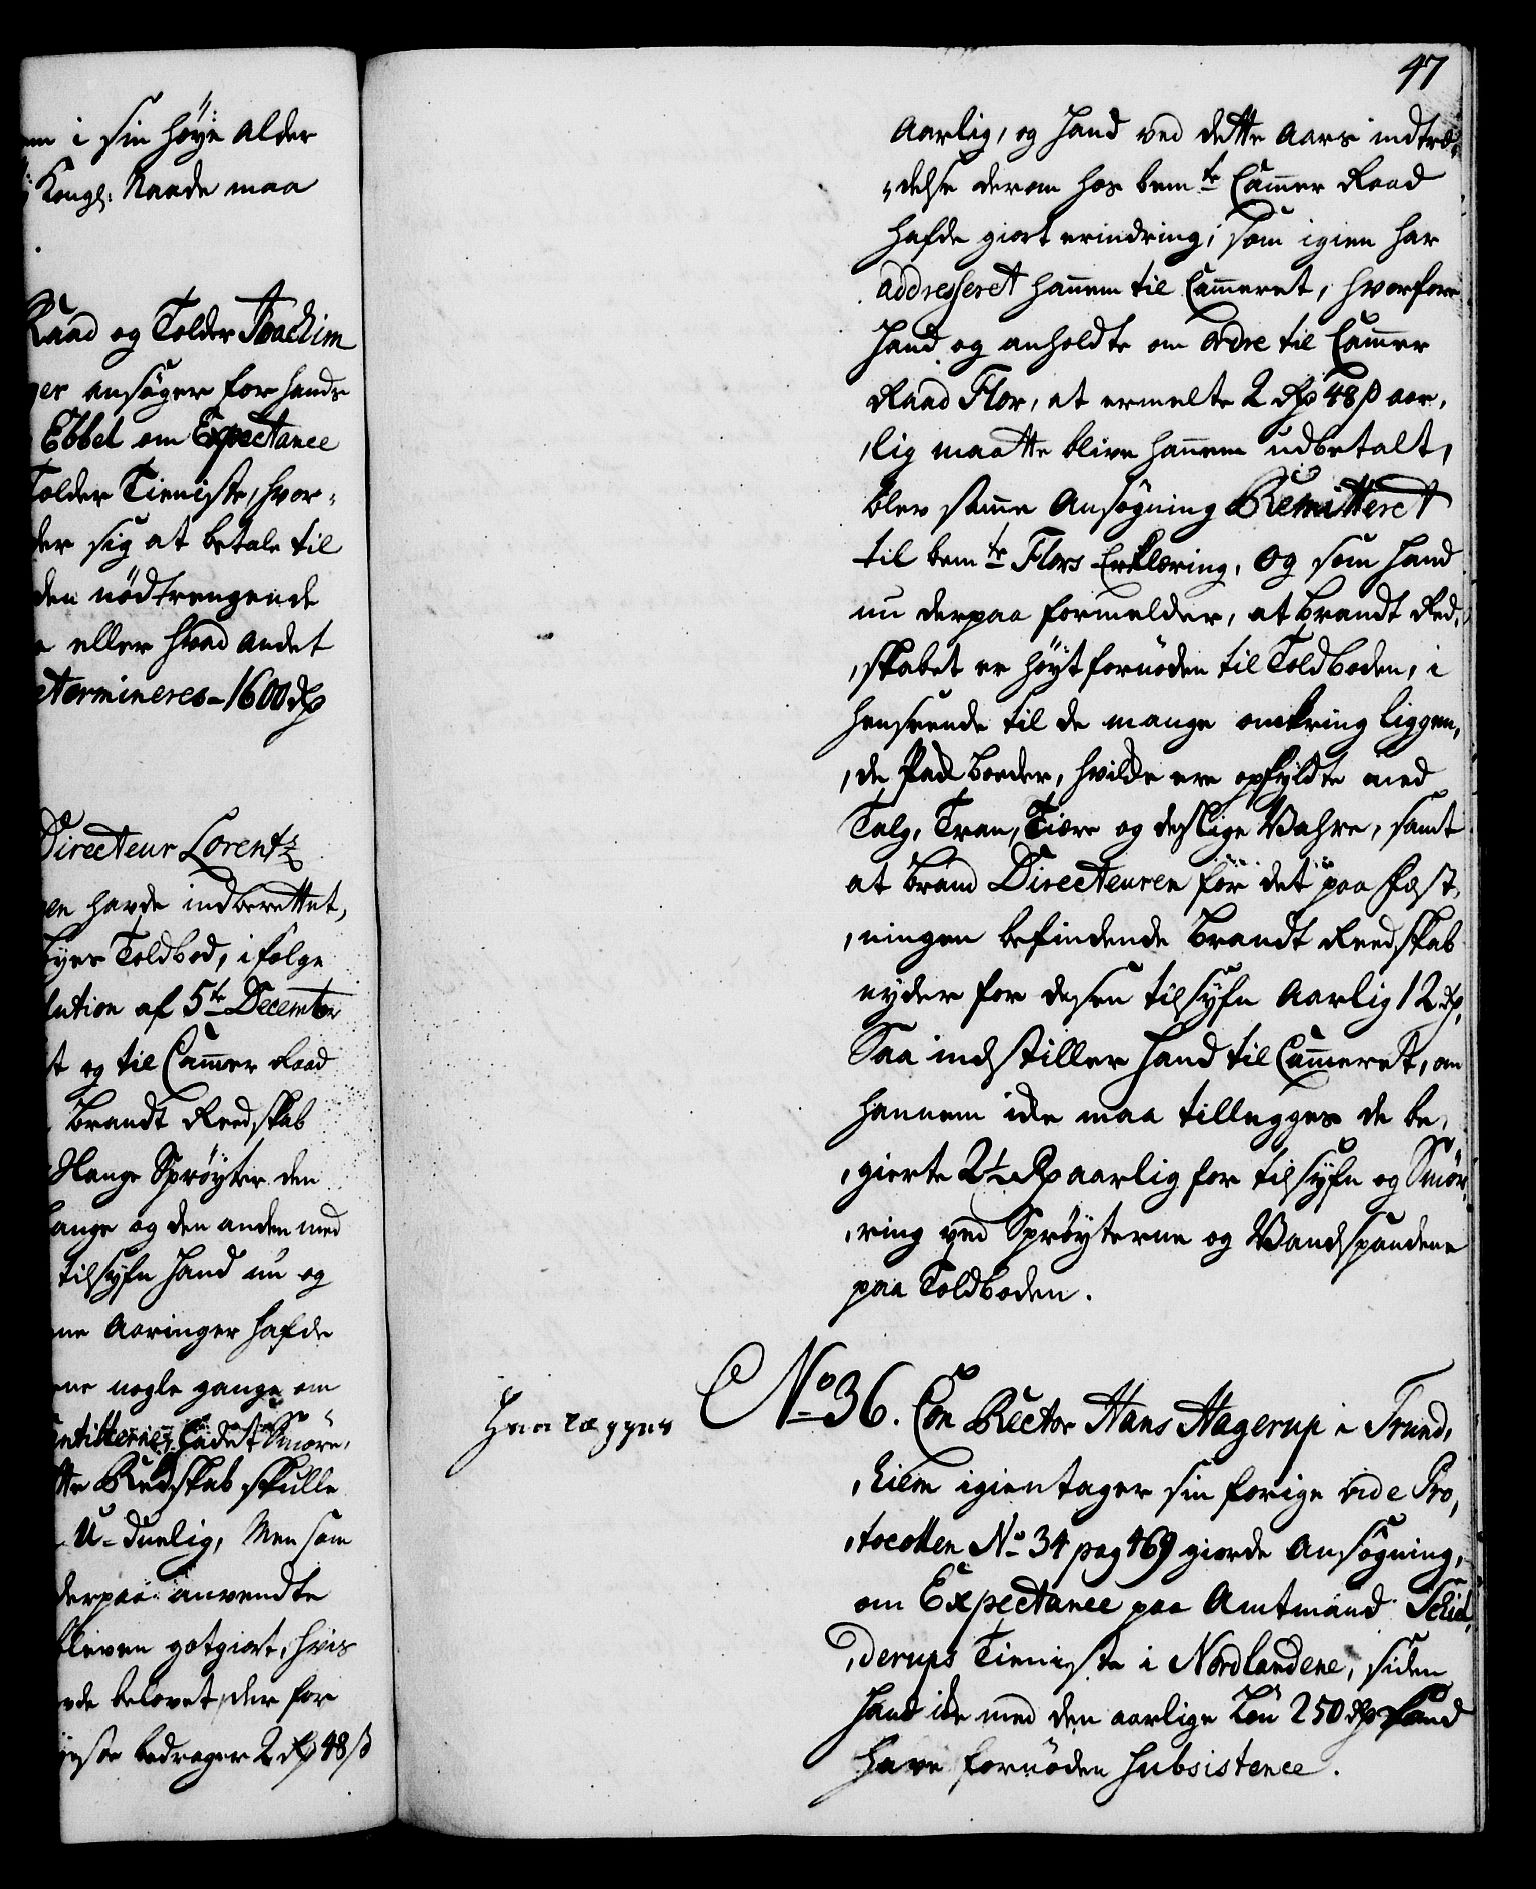 em i sin høye Alder
Kongl: Naade maa
Raad og Tolder Joachim
ger ansøger for hands
Ebbel om Expectance
Tolder Tieniste, hvor-
der sig at betale til
den nødtrengende
eller hvad andet
etermineres - 1600 rdr
Directeur Lorentz
en havde indberettet,
byes Toldbod, i følge
lution af 5te Decembr
st og til Cammer Raad
Brandt Reedskab
Slange Sprøyter den
lange og den anden med
tilsyn hand nu og
ne Aaringer hafde
ne nogle gange om
ladet Smøre,
tte Redskab skulle
U-duelig, Men som
derpaa anvendte
bleven gotgiort, hvis
vde belovet, der for
bedrager 2 rdr 48 s
47
Aarlig, og Hand ved dette Aars indtræ-
delse derom hos bemte Cammer Raad
hafde giort erindring, som igien har
addresseret hannem til Cammeret, hvorfore
Hand og anholdte om Ordre til Cammer
Raad Flor, at ermelte 2 rdr 48 s aar-
lig maatte blive hannem udbetalt,
blev samme Ansøgning Remitteret
til bemte Flors Erklæring, Og som Hand
nu derpaa formelder, at Brandt Red-
skabet er høyt fornøden til Toldboden, i
henseende til de mange omkring liggen-
de Pak Boeder, hvilke ere opfyldte med
Talg, Tran, Tiære og deslige Vahre, samt
at Brand Directeuren for det paa Fæst-
ningen befindende Brandt Reedskab
nyder for dessen tilsyn Aarlig 12 rdr,
Saa indstiller Hand til Cammeret, om
hannem icke maa tillegges de be-
gierte 2½ Rdr aarlig for tilsyn og Smør-
ring ved Sprøyterne og Vandspandene
paa Toldboden.
Henlægges
No 36. Con Rector Hans Hagerup i Trund-
hiem igientager sin forige vide Pro-
tocollen No 34 pag 469 giorde Ansøgning,
om Expectance paa Amtmand Schiel-
derups Tieniste i Nordlandene, siden
Hand icke med den aarlige Løn 250 rdr kand
have fornøden Subsistence.